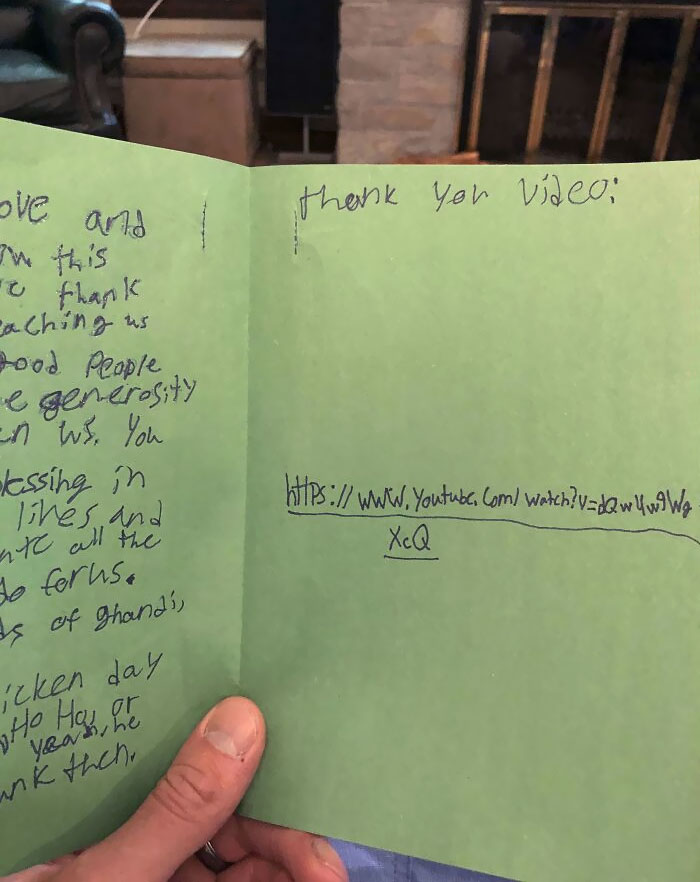 ove and
in this
thank
eaching us
good People
e generosity
en us. You
lessing in
lives, and
all the
do for us.
ds of ghandi,
icken day
Ho Ho, or
years, he
unk then.
thank you video:
https://www.youtube.com/watch?v=dQw4w9Wg
XcQ